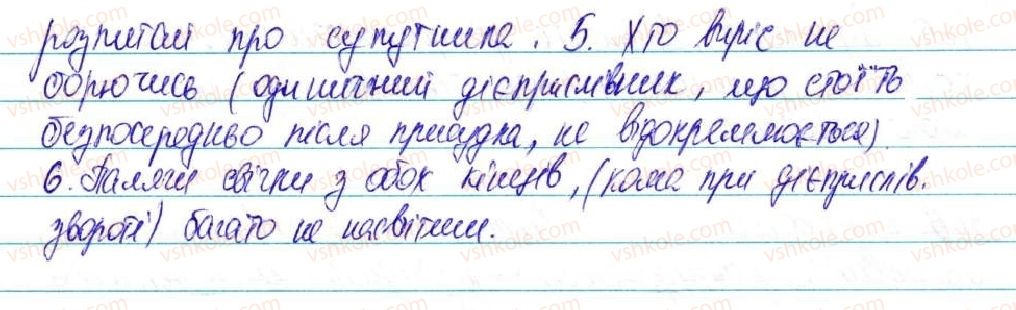 розпитай про супутника. 5. Хто виріс не
борючись (одиничний дієприслівник, що стоїть
безпосередньо після присудка, не відокремлюється).
6. Палячи свічки з обох кінців, (кома при дієприслів.
звороті) багато не насвітиш.